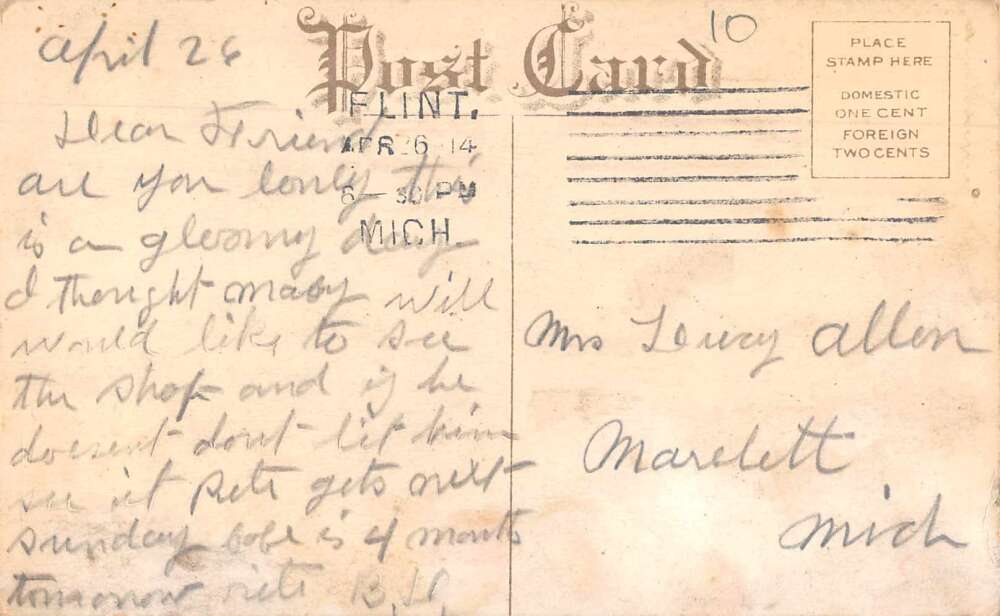 10
Post Card
PLACE
STAMP HERE
DOMESTIC
ONE CENT
FOREIGN
TWO CENTS
FLINT.
APR 26 14
6 - 30 PM
MICH
April 26
Dear Friend
are you lonly this
is a gloomy day
I thought maby will
would like to see
the shop and if he
doesent dont let him
see it Pete gets next
sunday babe is 4 months
tomorrow rite B.H.
Mrs Lucy Allen
Marelett
Mich